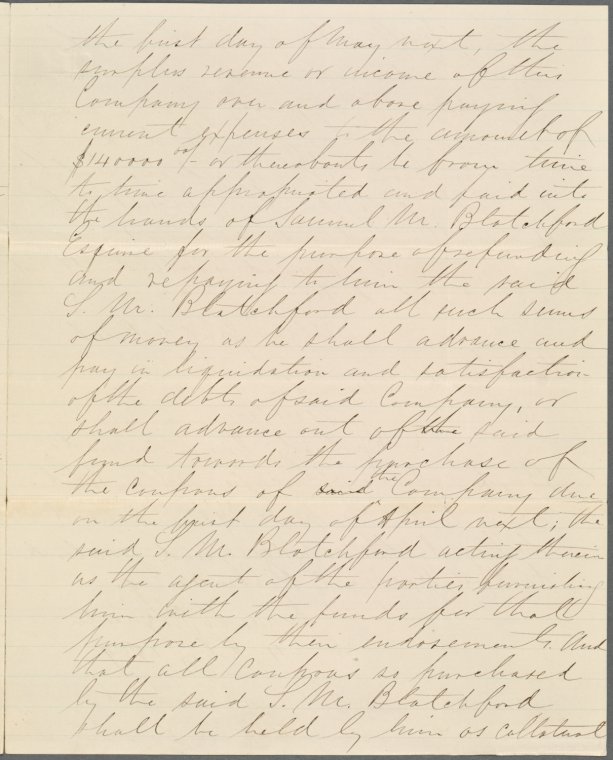 the first day of May next, the
surplus revenue or income of this
Company over and above paying
current expenses to the amount of
$140000 00/- or thereabouts be from time
to time appropriated and paid into
the hands of Samuel M. Blatchford
Esquire for the purpose of refunding
and repaying to him the said
S. M. Blatchford all such sums
of money as he shall advance and
pay in liquidation and satisfaction
of the debts of said Company, or
shall advance out of the said
fund towards the purchase of
the coupons of said the Company due
on the first day of April next; the
said S. M. Blatchford acting therein
as the agent of the parties furnishing
him with the funds for that
purpose by their endorsements. And
that all coupons so purchased
by the said S. M. Blatchford
shall be held by him as collateral